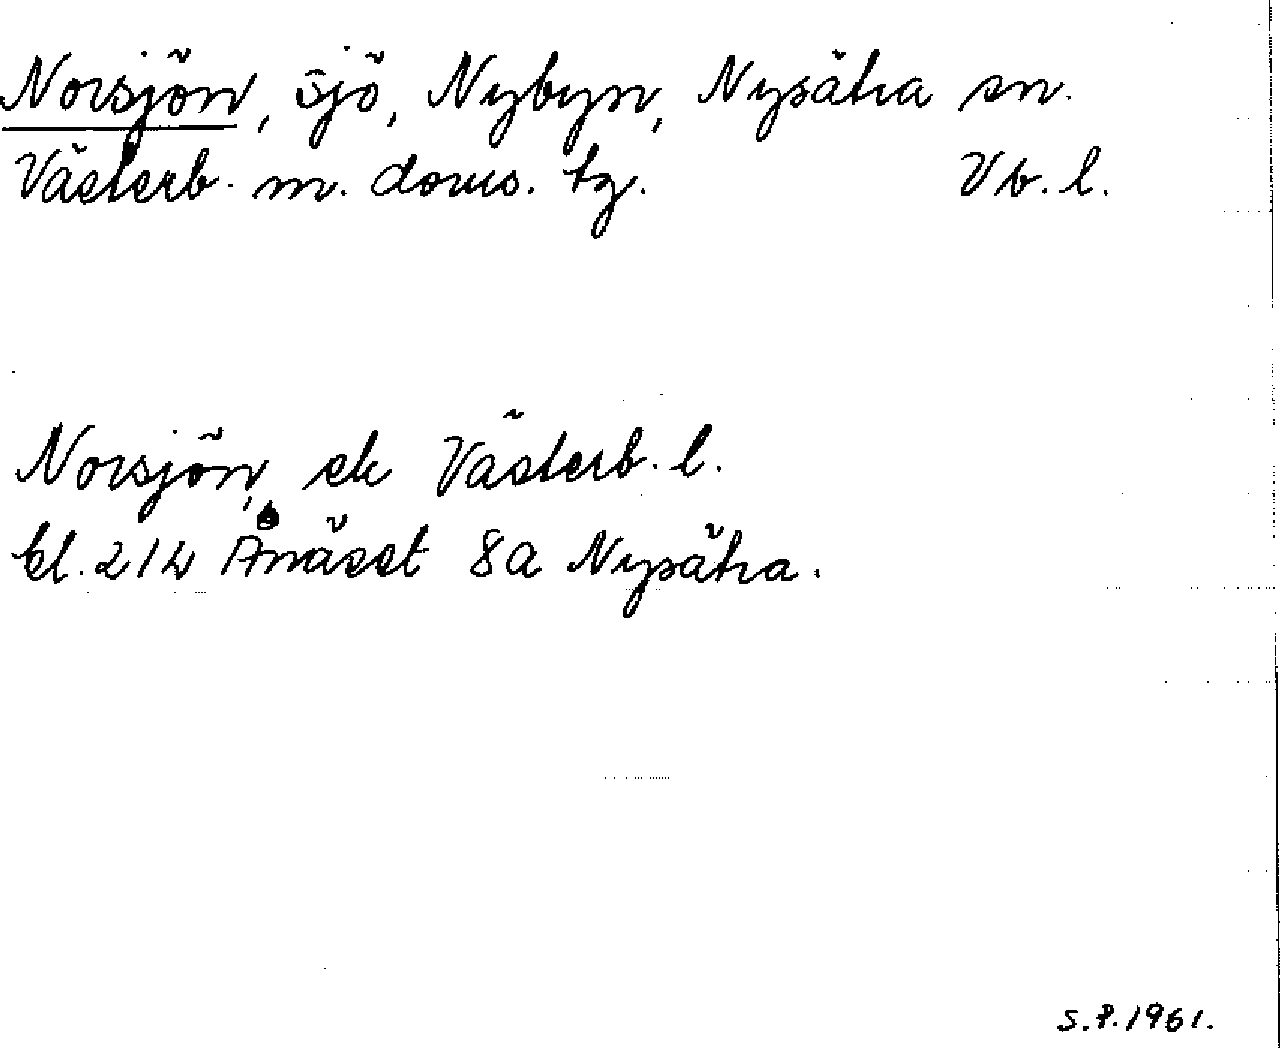 Norsjön, sjö, Nybyn, Nysätra sn.
Västerb. m. doms. tg. Vb. l.
Norsjön, ek Västerb. l.
bl. 214 Ånäset 8a Nysätra.
S.P. 1961.